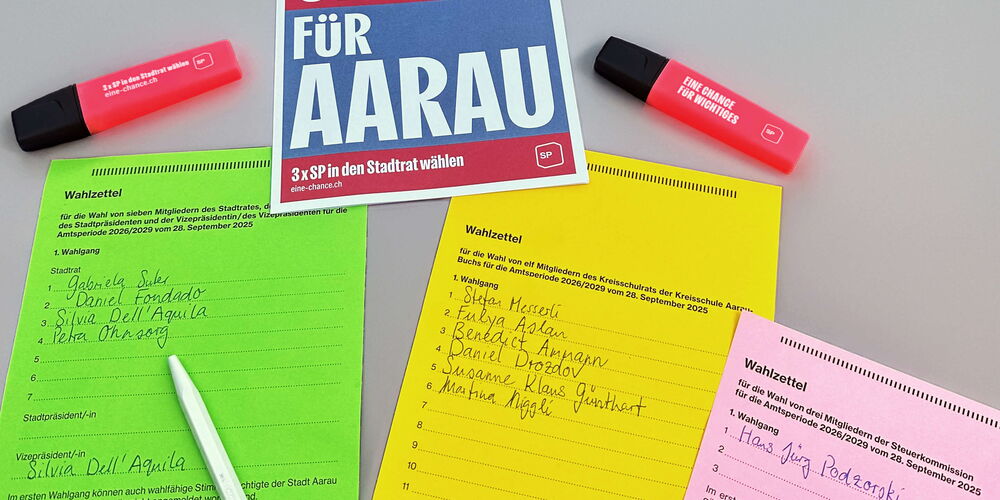 3 x SP in den Stadtrat wählen
eine-chance.ch
SP
FÜR
AARAU
3 x SP in den Stadtrat wählen
eine-chance.ch
SP
EINE CHANCE
FÜR WICHTIGES
SP
Wahlzettel
für die Wahl von sieben Mitgliedern des Stadtrates,
des Stadtpräsidenten und der Vizepräsidentin/des Vizepräsidenten für die
Amtsperiode 2026/2029 vom 28. September 2025
1. Wahlgang
Stadtrat
1 Gabriela Suter
2 Daniel Fondado
3 Silvia Dell'Aquila
4 Petra Ohnsorg
5
6
7
Stadtpräsident/-in
Vizepräsident/-in
Silvia Dell'Aquila
Im ersten Wahlgang können auch wahlfähige der Stadt Aarau
Wahlzettel
für die Wahl von elf Mitgliedern des Kreisschulrats der Kreisschule Aarau
Buchs für die Amtsperiode 2026/2029 vom 28. September 2025
1. Wahlgang
1 Stefan Messerli
2 Fulya Aslan
3 Benedict Ammann
4 Daniel Drozdov
5 Susanne Klaus Günthart
6 Martina Niggli
7
8
9
10
11
Wahlzettel
für die Wahl von drei Mitgliedern der Steuerkommission
für die Amtsperiode 2026/2029 vom 28. September 2025
1. Wahlgang
1 Hans Jürg Podzorski
2
3
Im ersten